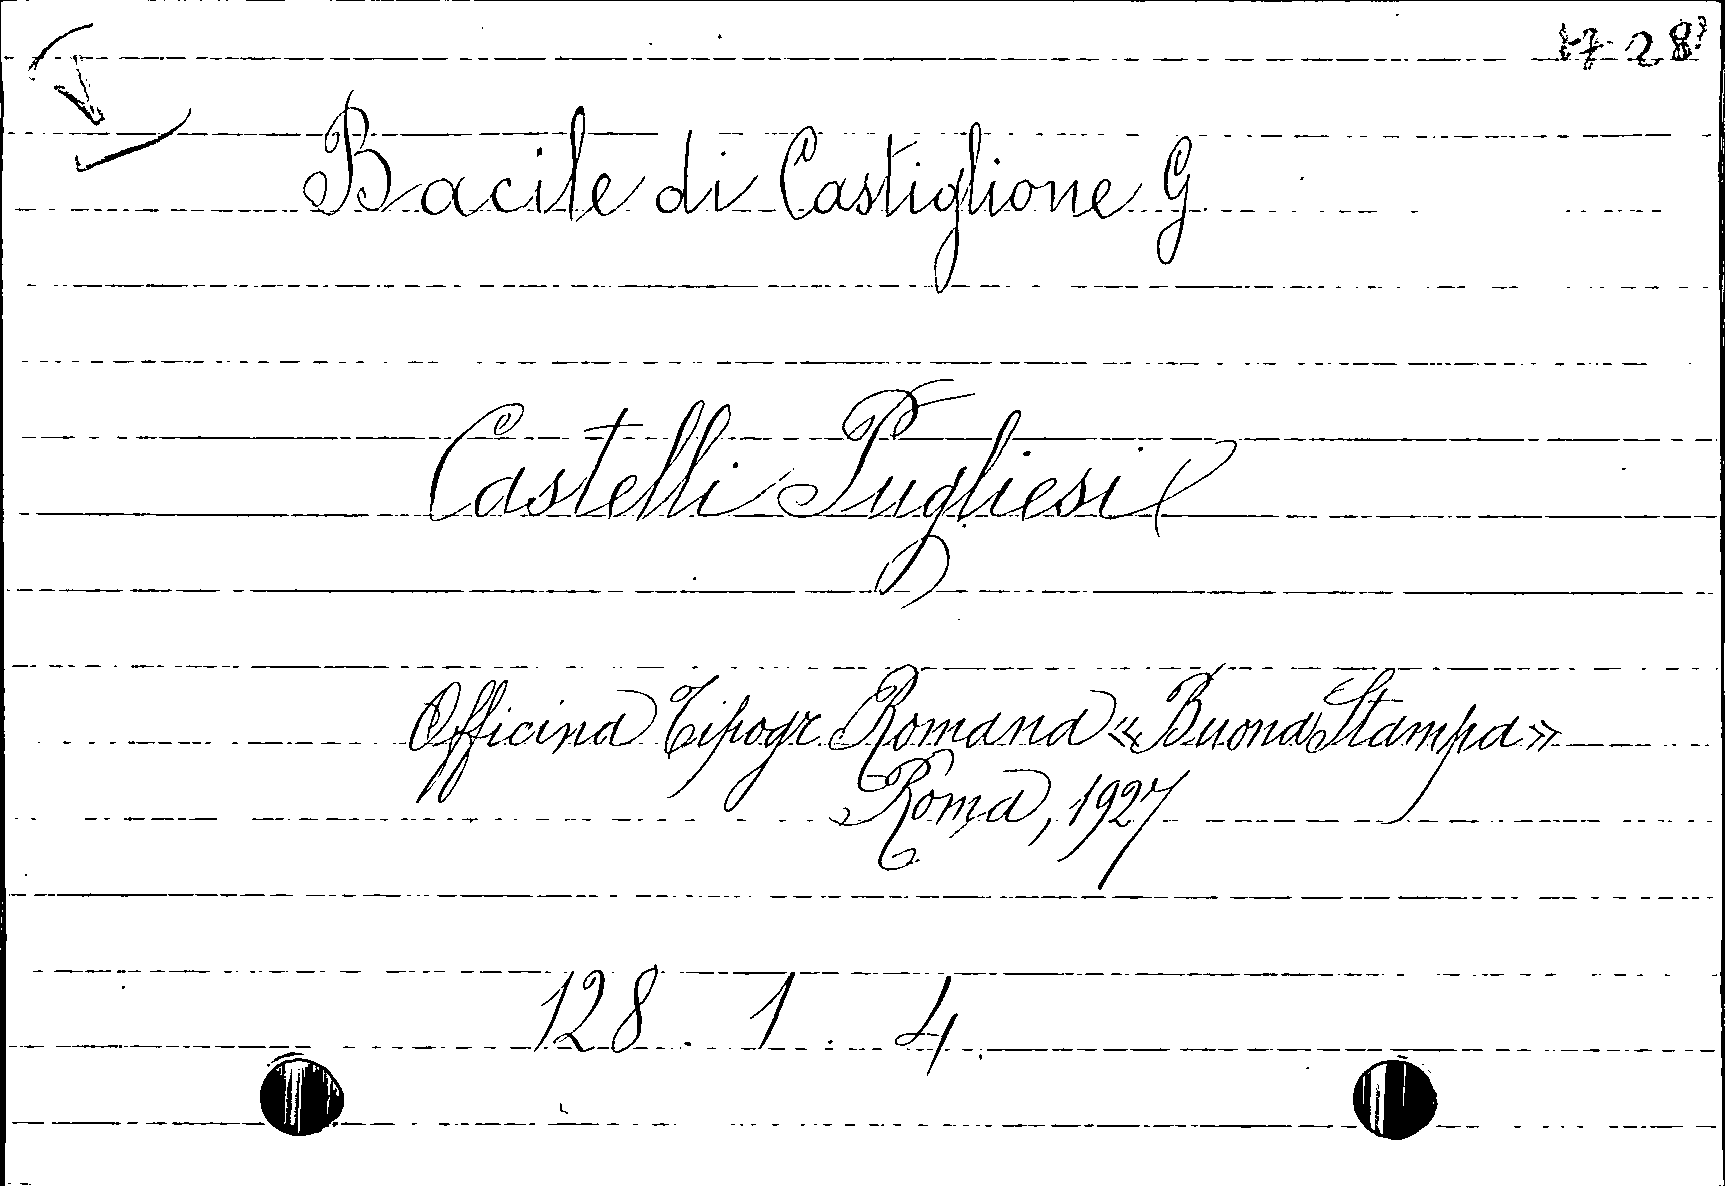 Bacile di Castiglione G
Castelli Pugliesi
Officina Tipogr. Romana «Buona Stampa»
Roma, 1927
128. 1. 4.